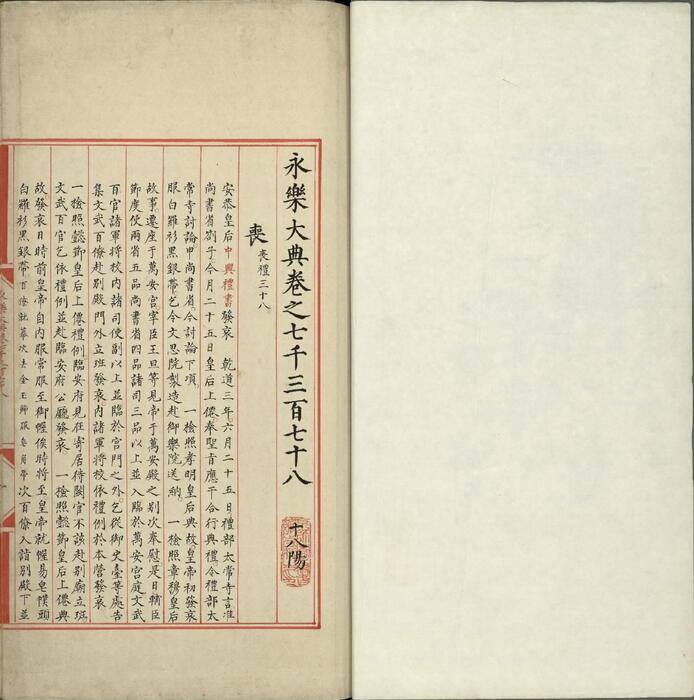 永樂大典卷之七千三百七十八 十八陽
喪 喪禮三十八
安恭皇后中興禮書發哀 乾道三年六月二十五日禮部太常寺言准
尚書省劄子今月二十五日皇后上僊奉聖旨應干合行典禮令禮部太
常寺討論申尚書省今討論下項 一檢照孝明皇后典故皇帝初發哀
服白羅衫黑銀帶乞令文思院製造赴御藥院送納 一檢照章穆皇后
故事遷座于萬安宮宰臣王旦等見帝于萬安殿之別次奉慰是日輔臣
節度使兩省五品尚書省四品諸司三品以上並入臨於萬安宮庭文武
百官諸軍將校內諸司使副以上並臨於宮門之外乞從御史臺等處告
集文武百僚赴別殿門外立班發哀內諸軍將校依禮例於本營發哀
一檢照懿節皇后上僊禮例臨安府見在寄居待闕官不該赴別廟立班
文武百官乞依禮例並赴臨安府公廳發哀 一檢照懿節皇后上僊典
故發哀日時前皇帝自內服常服至御幄俟時將至皇帝就幄易皂幞頭
白羅衫黑銀帶百僚赴幕次去金玉飾服皂角帶次百僚入詣別殿下並